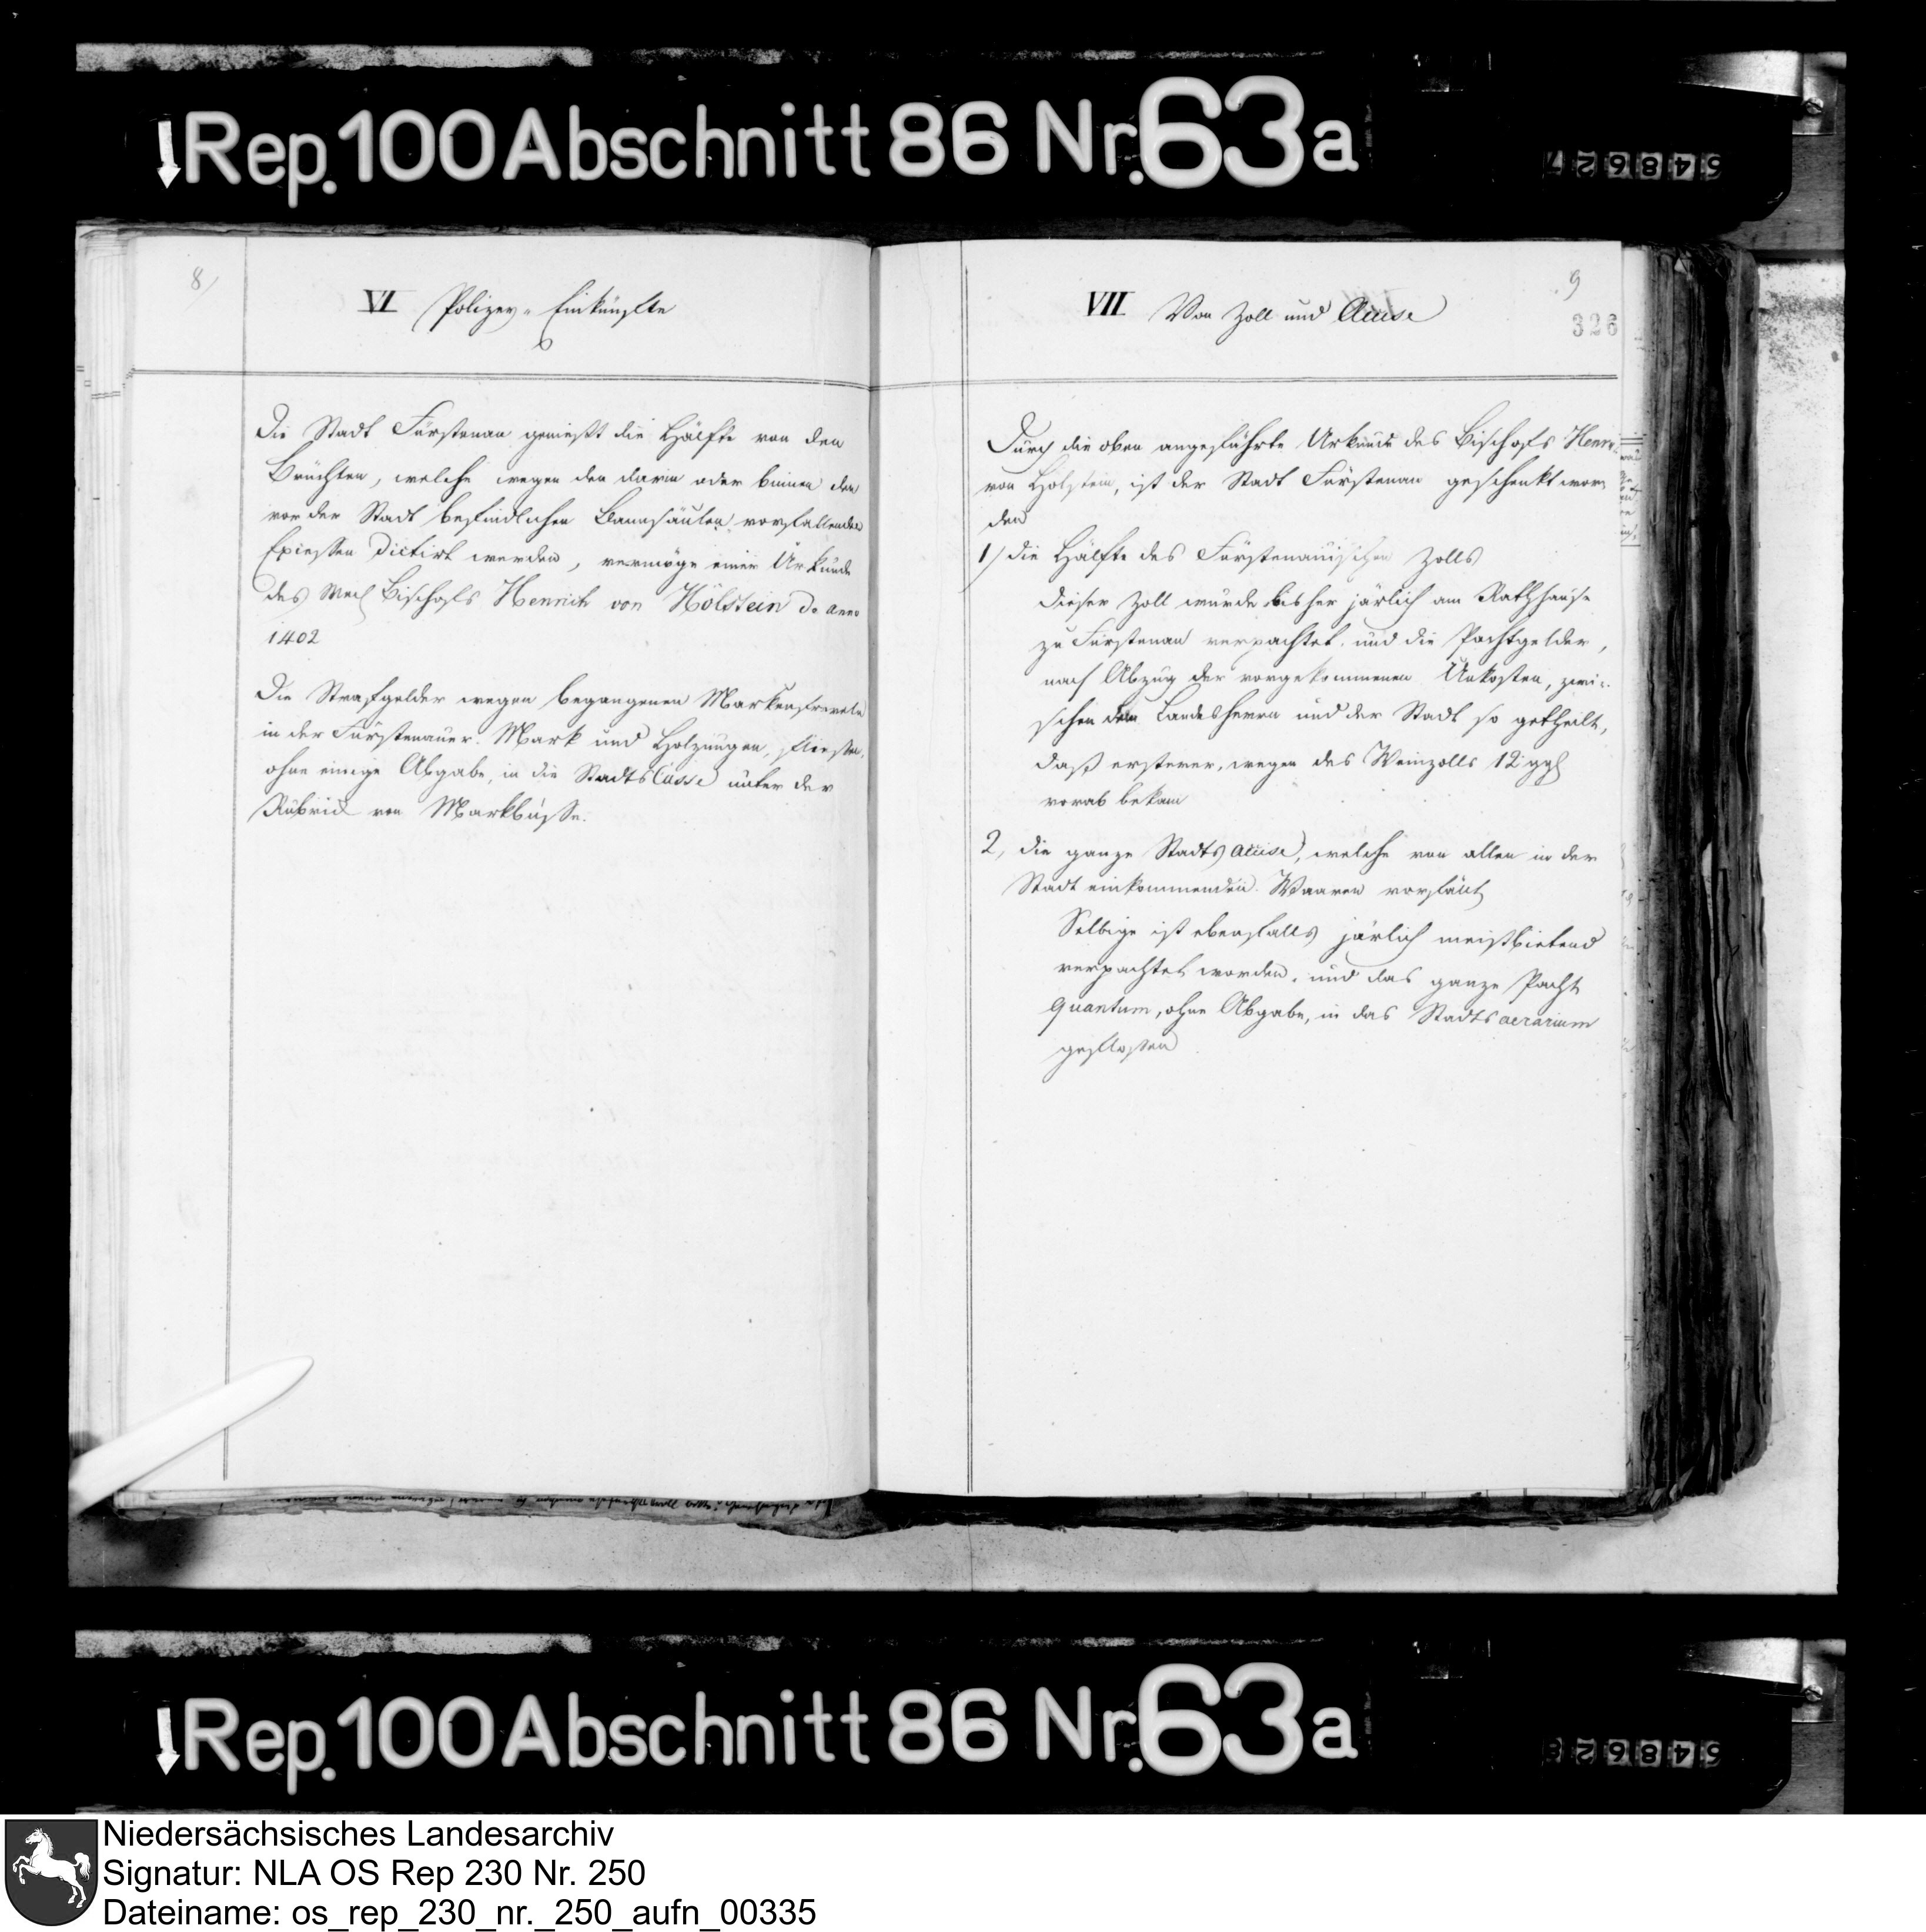 Rep. 100 Abschnitt 86 Nr. 63a
548627
8/
VI Polizey-Einkünfte
Die Stadt Fürstenau genießt die Hälfte von den
Brüchten, welche wegen den darin oder binnen den
vor der Stadt befindlichen Bannsäulen vorfallenden
Excessen dictirt werden, vermöge einer Urkunde
des Bischofs Henrich von Holstein de anno
1402
Die Strafgelder wegen begangenen Markenfreveln
in der Fürstenauer Mark und Holzungen, fliessen,
ohne einige Abgabe, in die Stadts Casse unter der
Rubric von Markbüsse.
9
326
VII Von Zoll und Accise
Durch die oben angeführte Urkunde des Bischofs Henr.
von Holstein, ist der Stadt Fürstenau geschenkt wor-
den
1/ die Hälfte des Fürstenauischen Zolls
Dieser Zoll wurde bisher järlich am Rathhause
zu Fürstenau verpachtet, und die Pachtgelder,
nach Abzug der vorgekommenen Unkosten, zwi-
schen dem Landesherrn und der Stadt so getheilt,
daß ersterer, wegen des Weinzolls 12 ggl
vorab bekam
2, die ganze Stadts accise, welche von allen in der
Stadt einkommenden Waaren vorfällt
Selbige ist ebenfalls järlich meistbietend
verpachtet worden, und das ganze Pacht
quantum, ohne Abgabe, in das Stadts aerarium
geflossen
Rep. 100 Abschnitt 86 Nr. 63a
548628
Niedersächsisches Landesarchiv
Signatur: NLA OS Rep 230 Nr. 250
Dateiname: os_rep_230_nr._250_aufn_00335